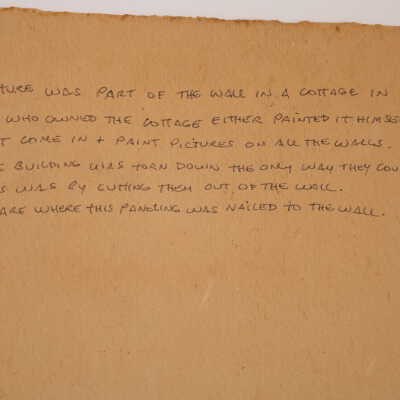 TURE WAS PART OF THE WALL IN A COTTAGE IN
WHO OWNED THE COTTAGE EITHER PAINTED IT HIMSE
T COME IN + PAINT PICTURES ON ALL THE WALLS.
E BUILDING WAS TORN DOWN THE ONLY WAY THEY COU
S WAS BY CUTTING THEM OUT OF THE WALL.
ARE WHERE THIS PANELING WAS NAILED TO THE WALL.